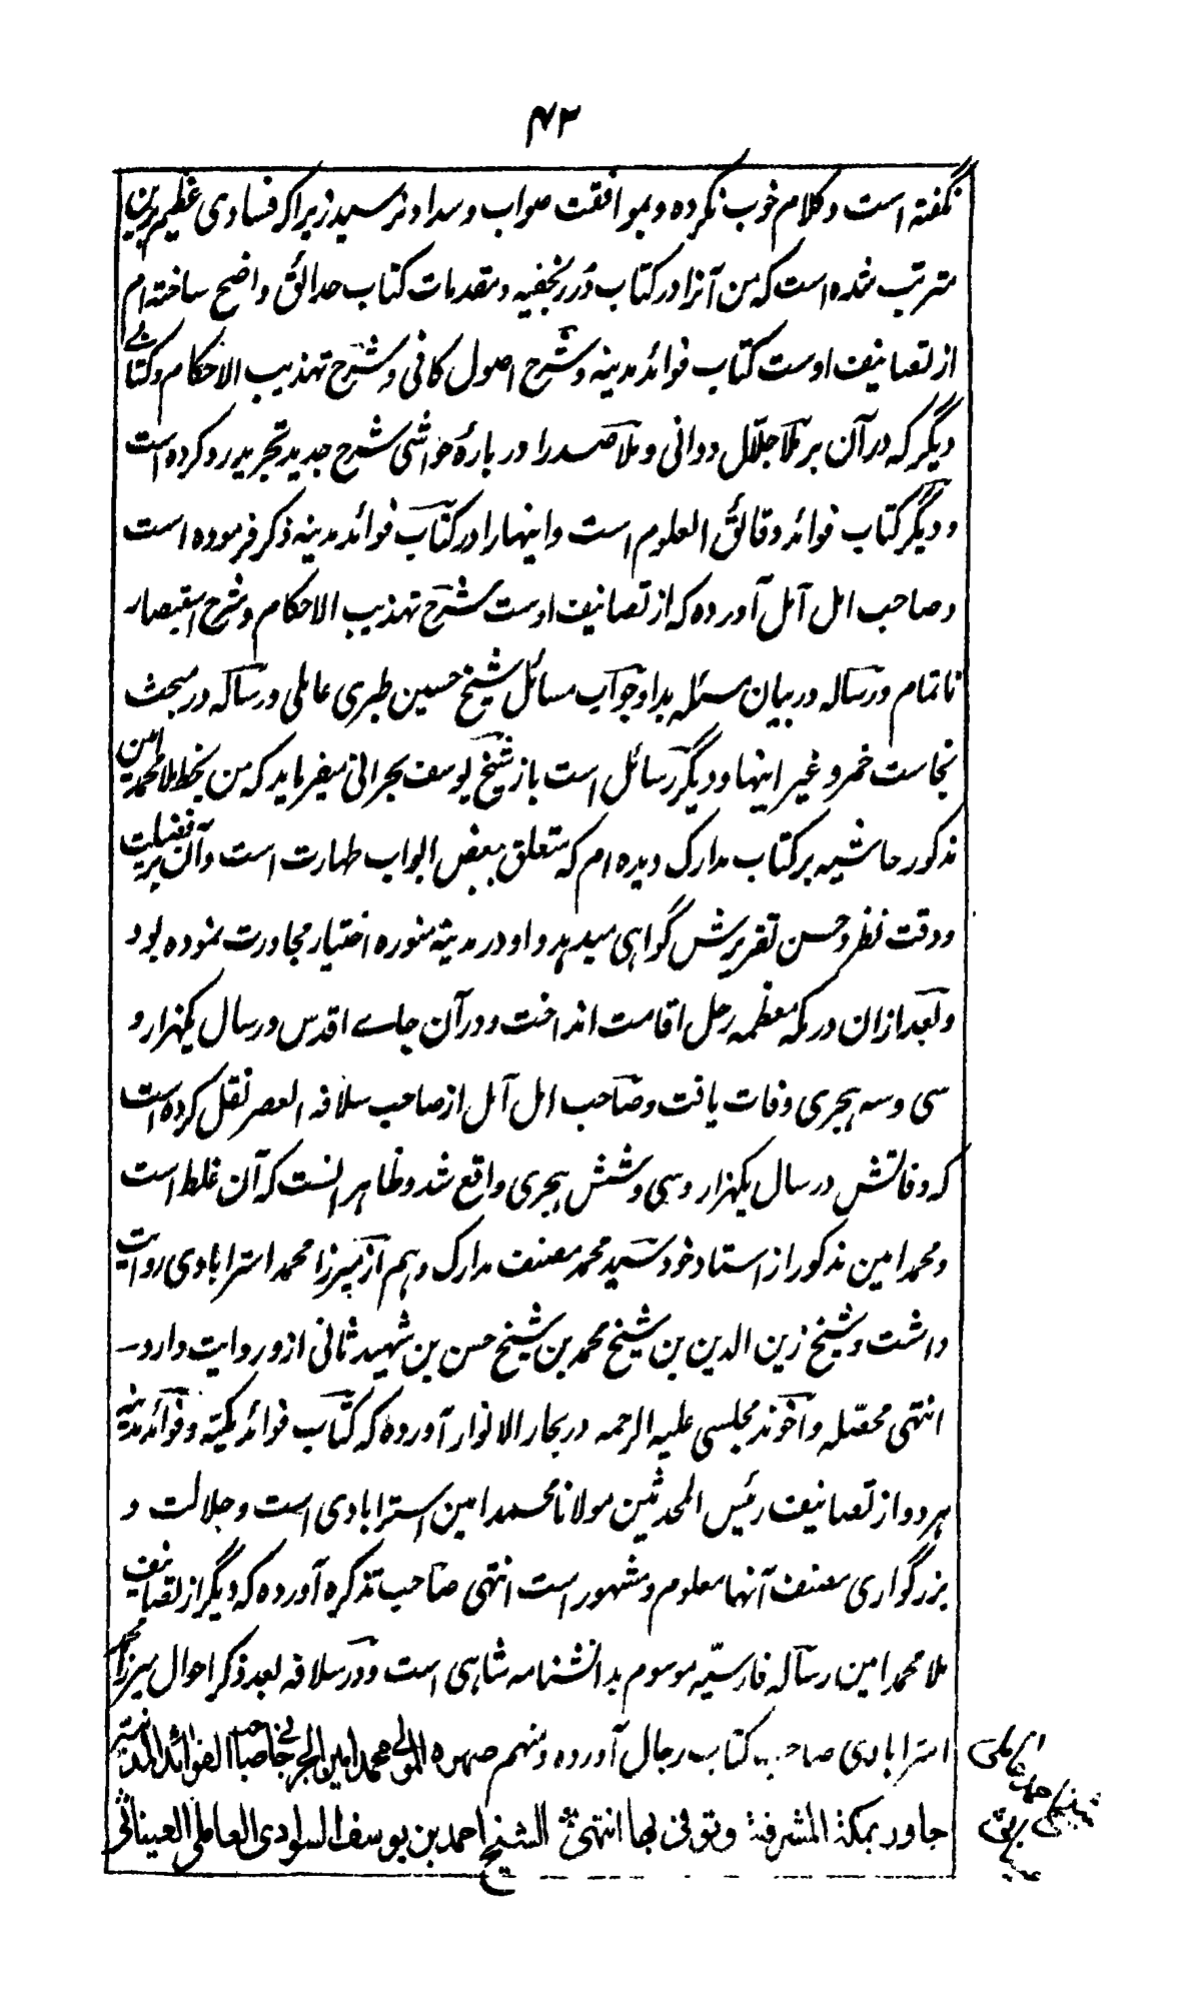 ۴۲
نگفته است و کلام خوب نکرده و بموافقت صواب و سداد نرسید زیرا که فسادی عظیم برین
مترتب شده است که من آنرا در کتاب درر نجفیه و مقدمات کتاب حدائق واضح ساخته ام
از تصانیف اوست کتاب فوائد مدینه و شرح اصول کافی و شرح تهذیب الاحکام و کتابے
دیگر که در آن بر ملا جلال دوانی و ملا صدرا در بارهٔ حواشی شرح جدید تجرید رد کرده است
و دیگر کتاب فوائد دقائق العلوم است و اینها را در کتاب فوائد مدینه ذکر فرموده است
و صاحب امل آمل آورده که از تصانیف اوست شرح تهذیب الاحکام و شرح استبصار
ناتمام و رساله در بیان مسئله بدا و جواب مسائل شیخ حسین طهری عاملی و رساله در مبحث
نجاست خمر و غیر اینها و دیگر رسائل است باز شیخ یوسف بحرانی میفرماید که من بخط ملا محمد امین
مذکور حاشیه بر کتاب مدارک دیده ام که متعلق ببعض ابواب طهارت است و آن بر فضیلت
و دقت نظر و حسن تقریرش گواهی میدهد و او در مدینه منوره اختیار مجاورت نموده بود
و بعد ازان در مکه معظمه رحل اقامت انداخت و در آن جاے اقدس در سال یکهزار و
سی و سه هجری وفات یافت و صاحب امل آمل از صاحب سلافه العصر نقل کرده است
که وفاتش در سال یکهزار و سی و شش هجری واقع شد و ظاهر انست که آن غلط است
و محمد امین مذکور از استاد خود سید محمد مصنف مدارک و هم از میرزا محمد استرابادی روایت
داشت و شیخ زین الدین بن شیخ محمد بن شیخ حسن بن شهید ثانی از و روایت دارد
انتهی محصله و آخوند مجلسی علیه الرحمه در بحار الانوار آورده که کتاب فوائد مکیته و فوائد مدینه
هر دو از تصانیف رئیس المحدثین مولانا محمد امین استرابادی است و جلالت و
بزرگواری مصنف آنها معلوم و مشهور است انتهی صاحب تذکره آورده که دیگر از تصانیف
ملا محمد امین رساله فارسیّه موسوم بدانشنامه شاهی است و در سلافه بعد ذکر احوال میرزا محمد
استرابادی صاحب کتاب رجال آورده و منهم صهره المولے محمد امین الجرجانے صاحب الفوائد المدنیّه
جاور بمکة المشرفة و توفی بها انتهیٰ الشیخ احمد بن یوسف السوادی العاملی العیناثی